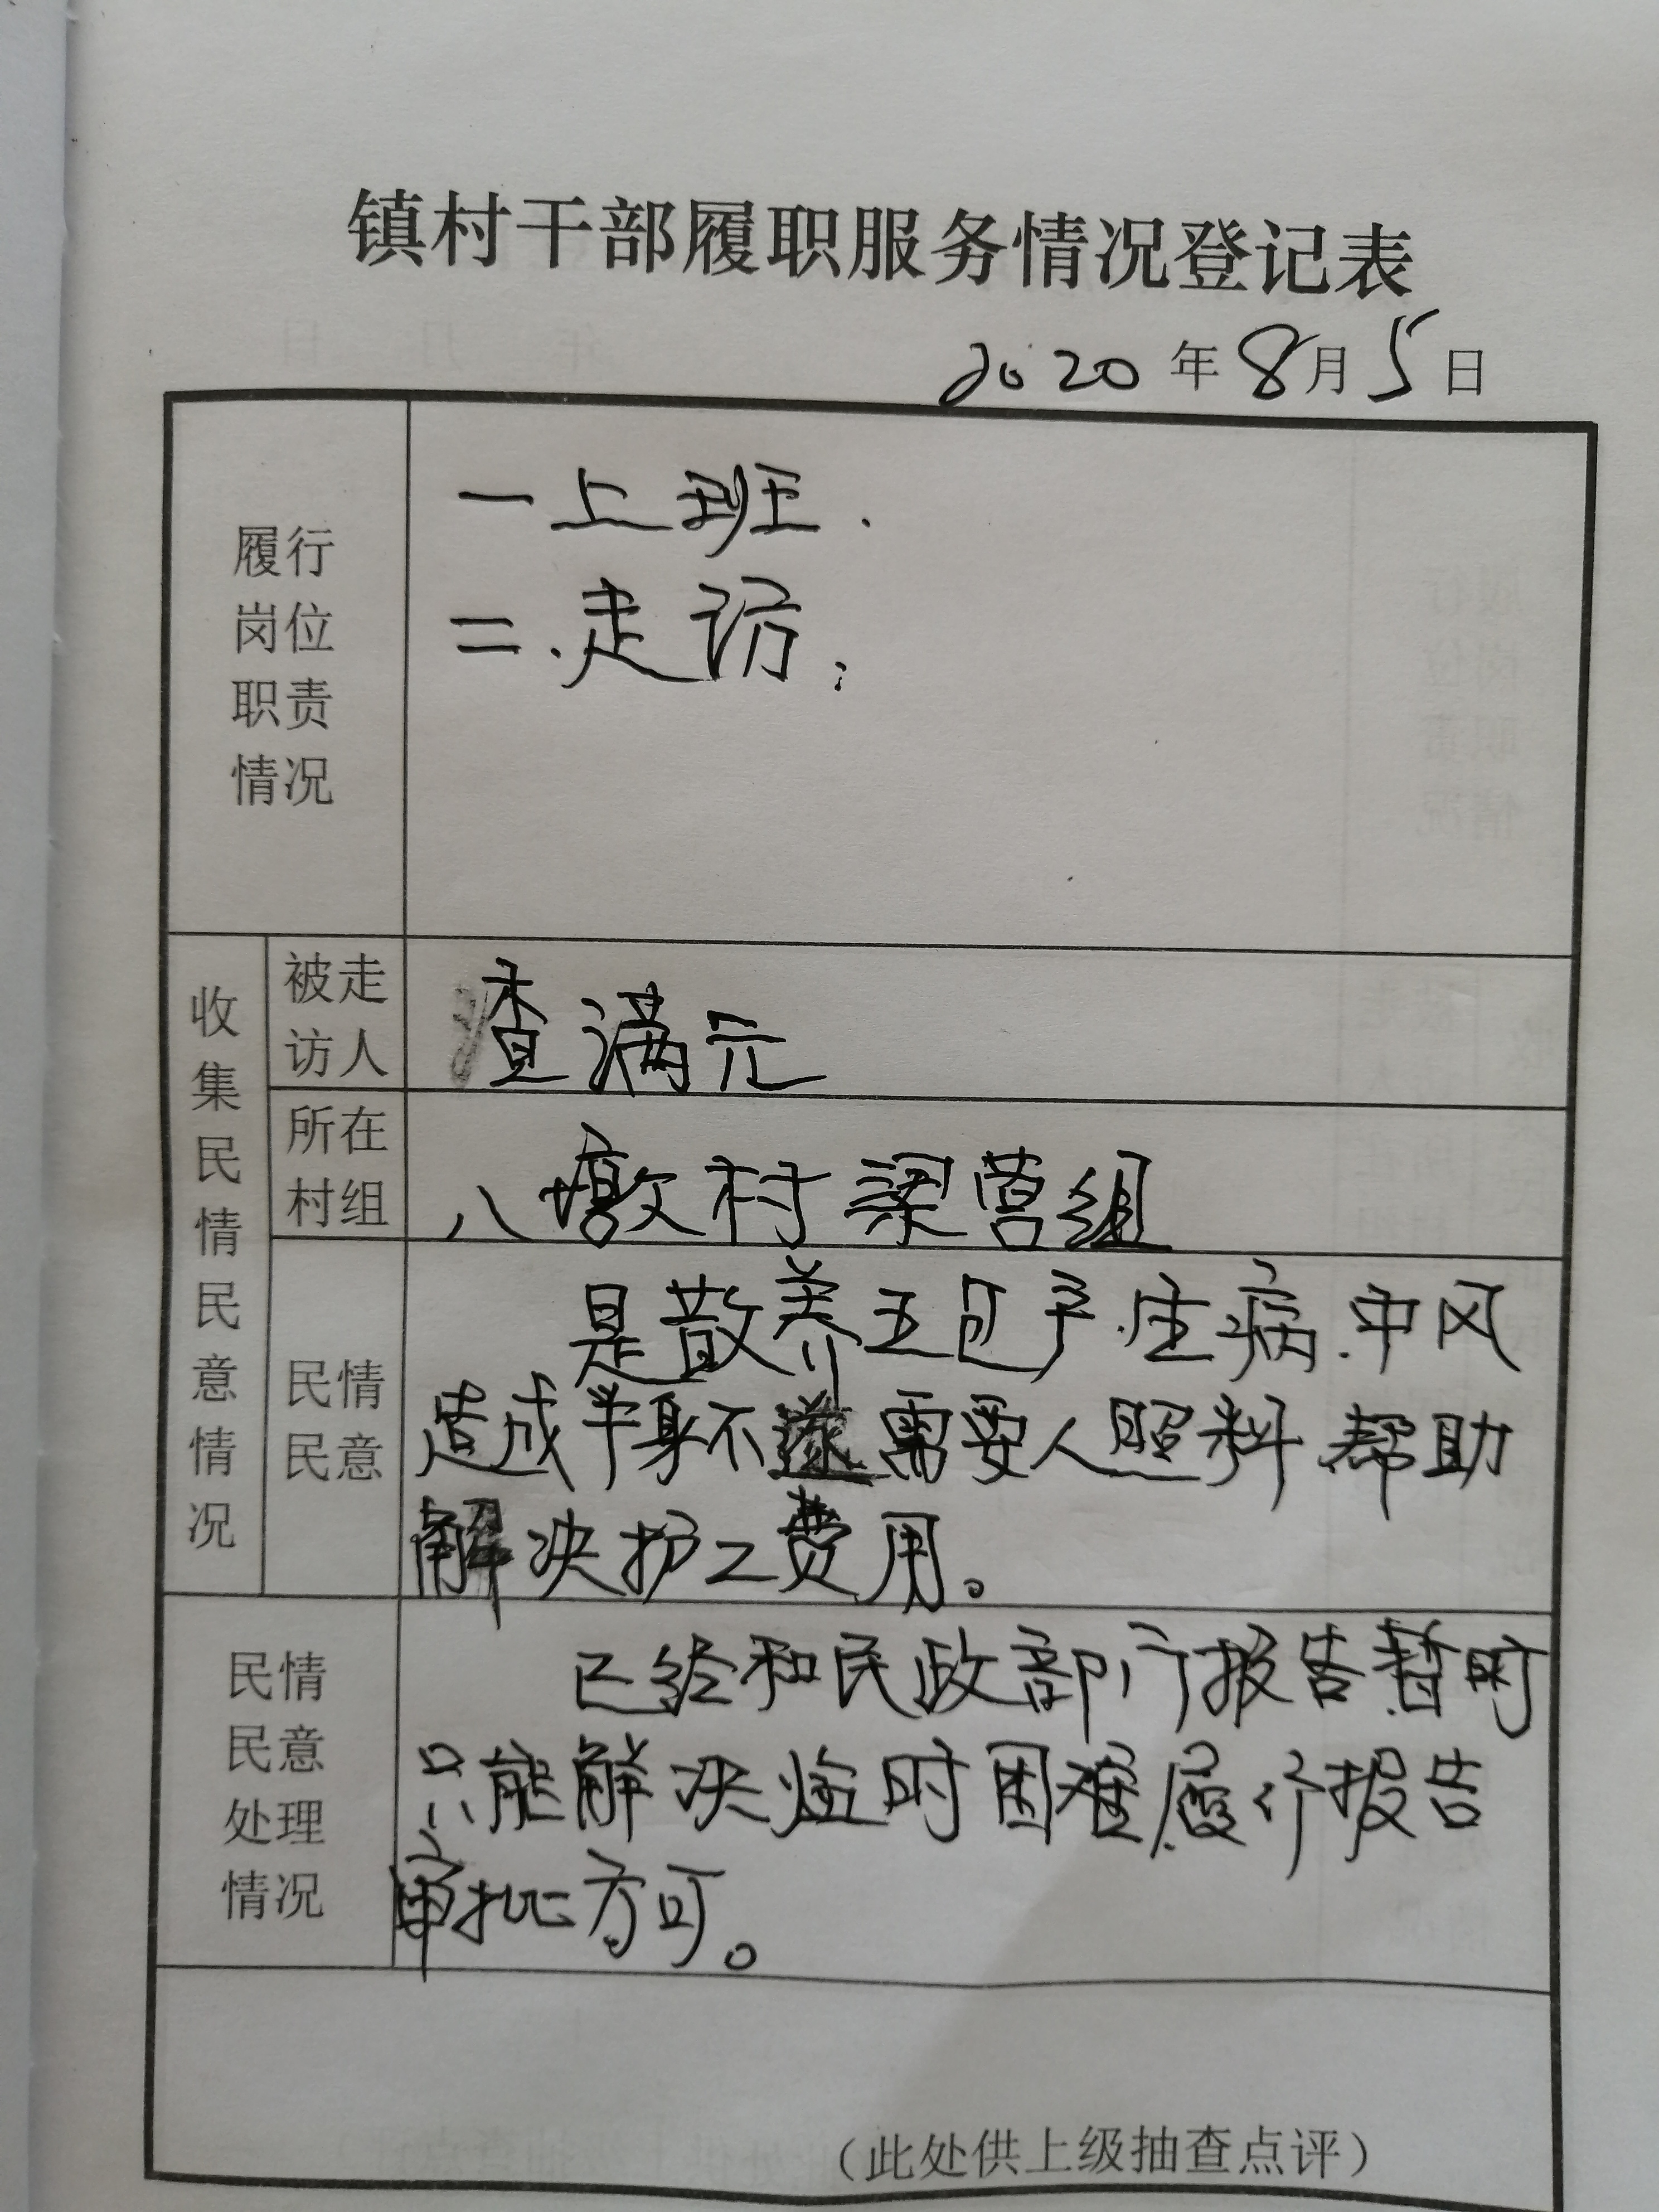 镇村干部履职服务情况登记表
2020年8月5日
履行
岗位
职责
情况
一上班.
二.走访;
收集民情民意情况
被走
访人
查满元
所在
村组
八墩村梁营组
民情
民意
是散养五包户.生病.中风
造成半身不遂需要人照料.帮助
解决护工费用。
民情
民意
处理
情况
已经和民政部门报告暂时
只能解决临时困难履行报告
审批方可。
(此处供上级抽查点评)